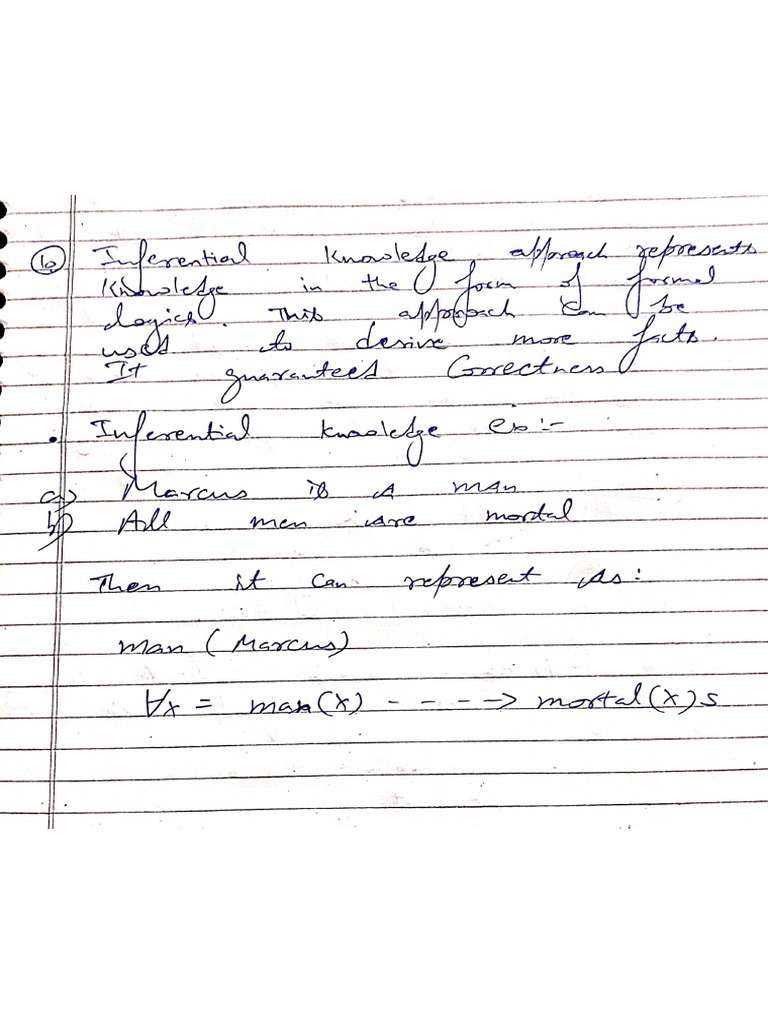 b Inferential knowledge approach represents
knowledge in the form of formal
logics. This approach can be
used to derive more facts.
It guarantees Correctness
• Inferential knowledge ex :-
a) Marcus is a man
b) All men are mortal
Then it can represent as :
man (Marcus)
∀x = man(x) - - - -> mortal(x)s